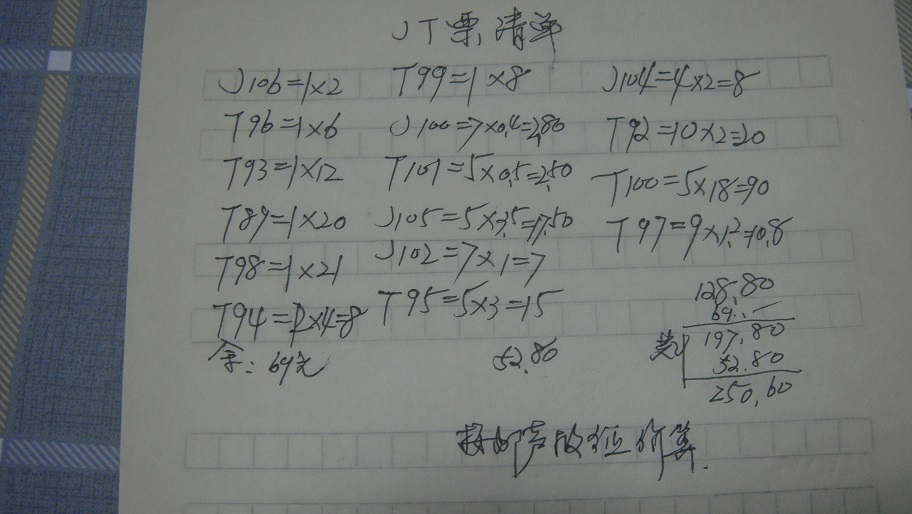 JT票清单
J106=1×2 T99=1×8 J104=4×2=8
T96=1×6 J100=7×0.4=2.80 T92=10×2=20
T93=1×12 T101=5×0.5=2.50 T100=5×18=90
T89=1×20 J105=5×3.5=17.50 T97=9×1.2=10.8
T98=1×21 J102=7×1=7
T94=2×4=8 T95=5×3=15
128.80
69.—
合:69元 52.80 197.80
52.80
250.60
按邮声低位价算.